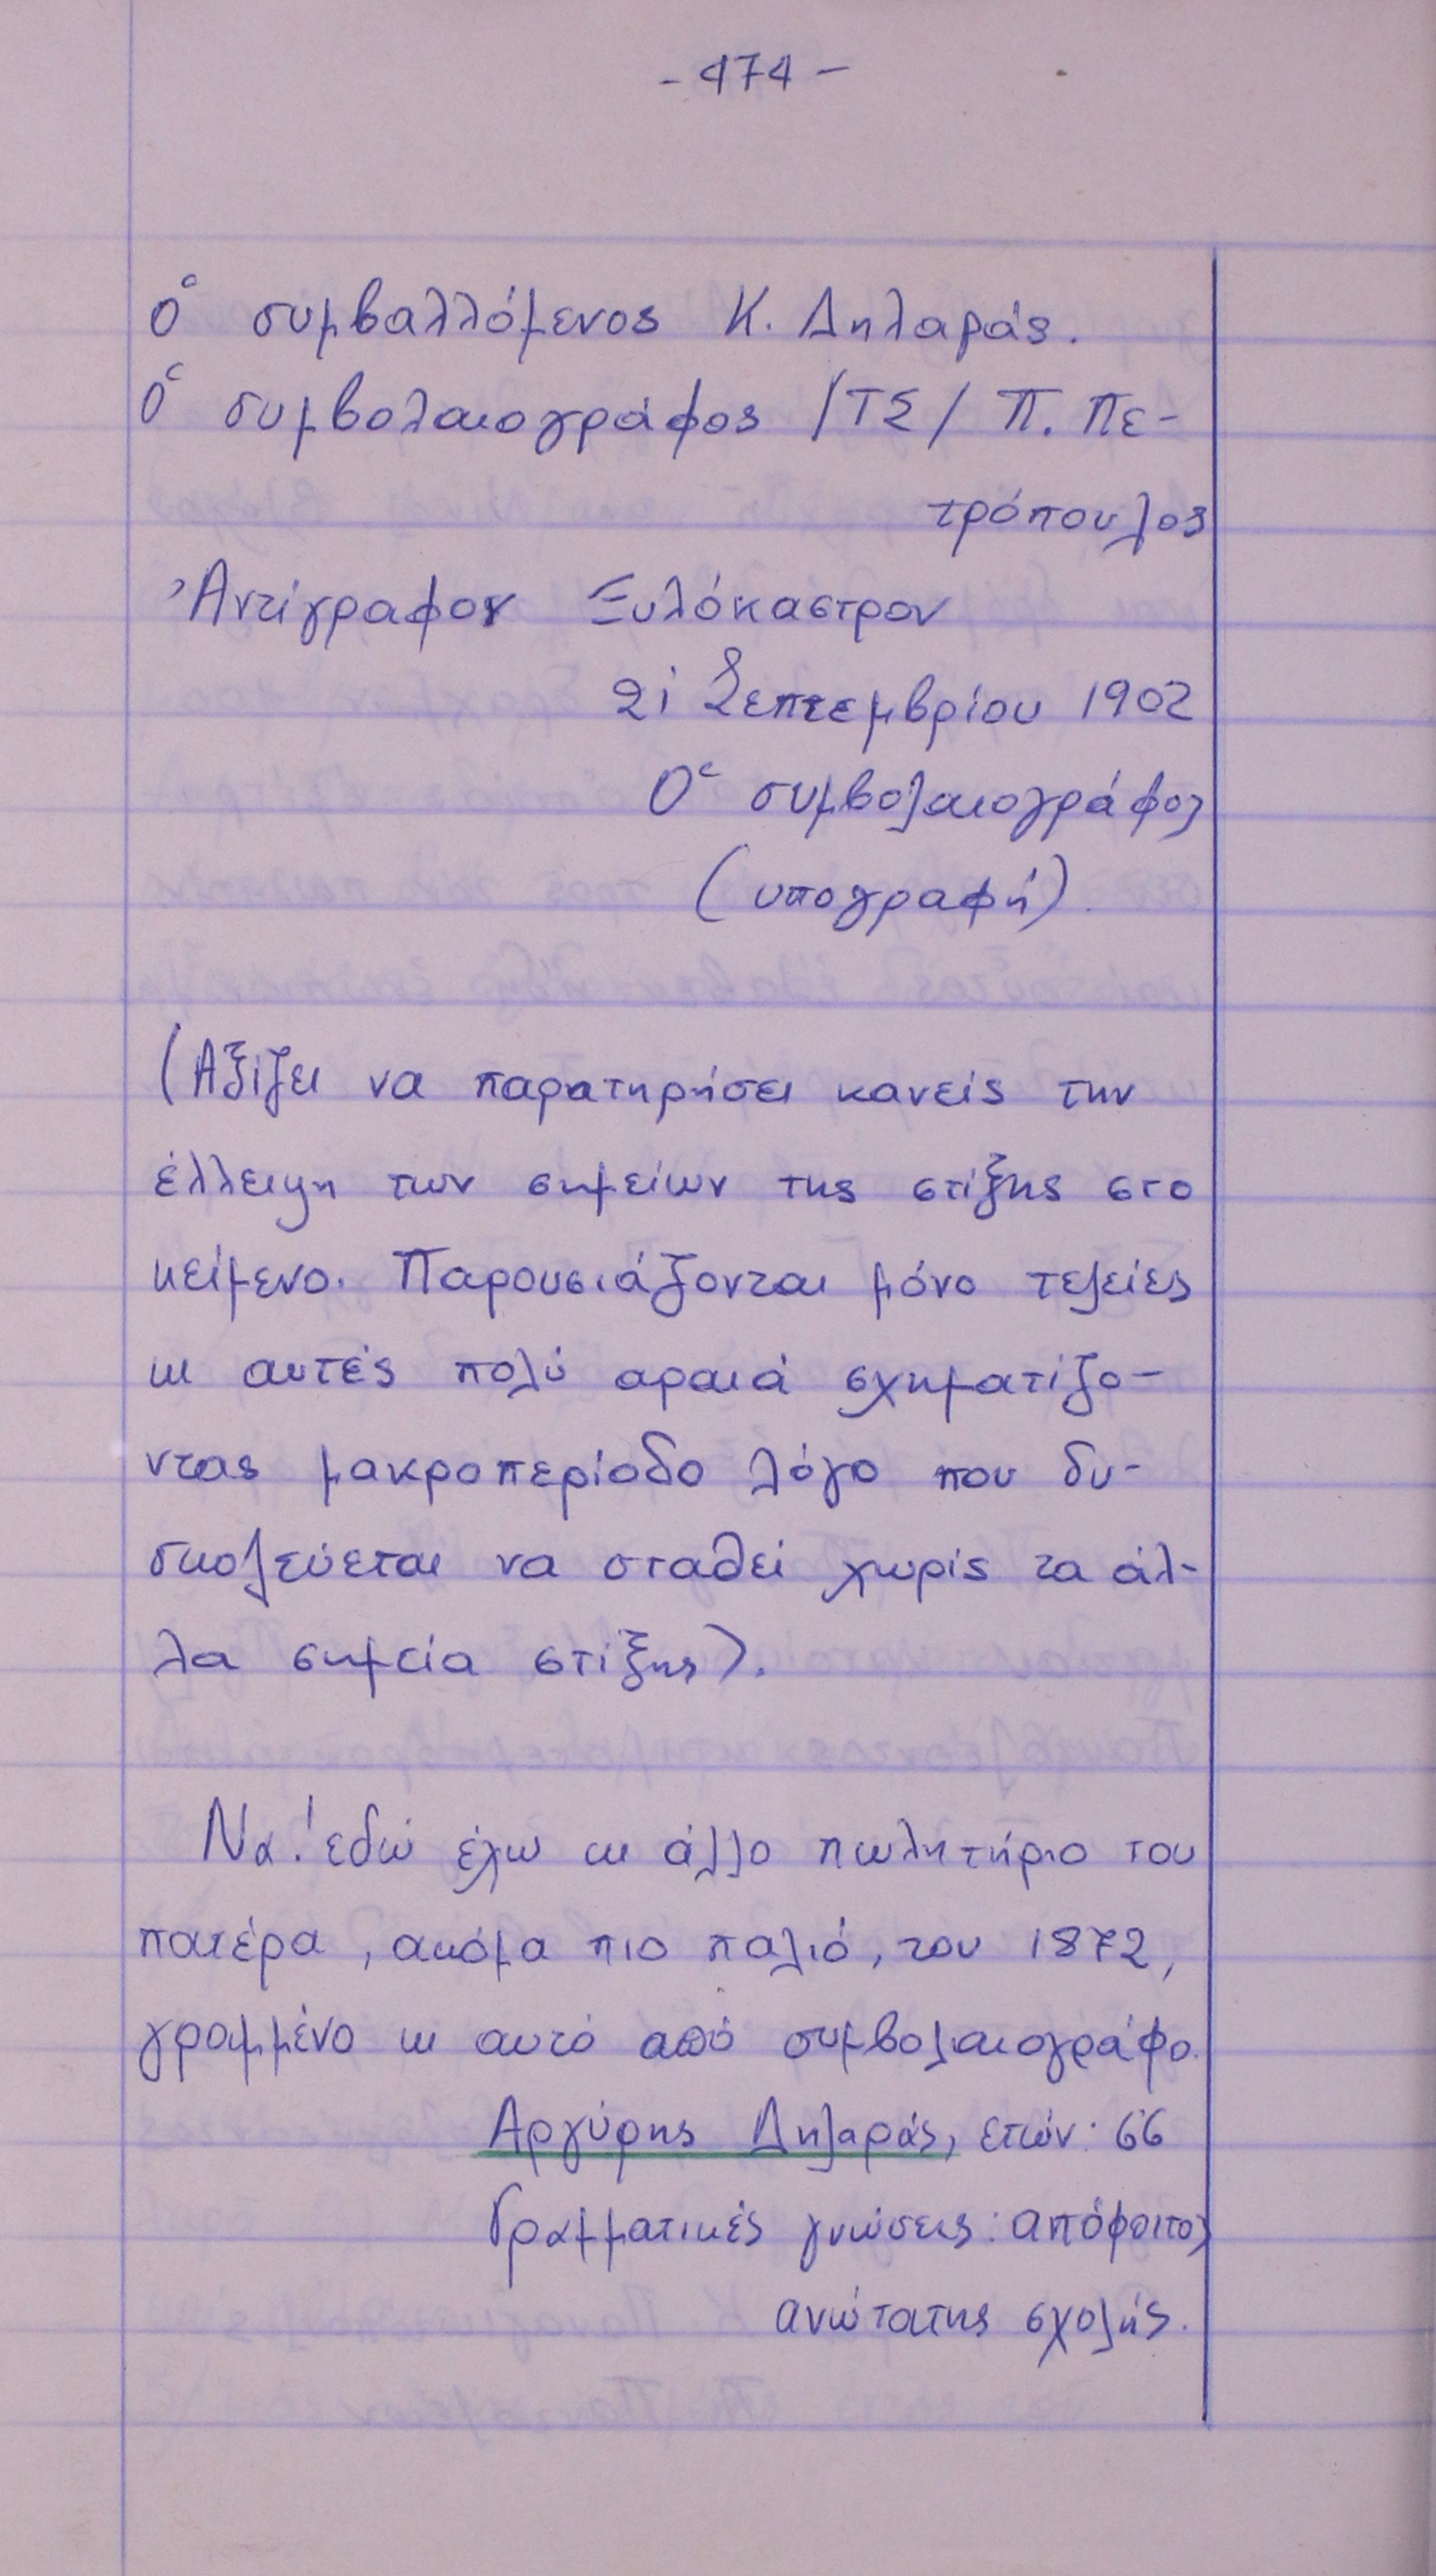 - 474 -
Ὁ συμβαλλόμενος Κ. Δηλαράς.
Ὁ συμβολαιογράφος /ΤΣ/ Π. Πε-
τρόπουλος
Ἀντίγραφον Ξυλόκαστρον
21 Σεπτεμβρίου 1902
Ὁ συμβολαιογράφος
(υπογραφή).
(Αξίζει να παρατηρήσει κανείς την
έλλειψη των σημείων της στίξης στο
κείμενο. Παρουσιάζονται μόνο τελείες
κι αυτές πολύ αραιά σχηματίζο-
ντας μακροπερίοδο λόγο που δυ-
σκολεύεται να σταθεί χωρίς τα άλ-
λα σημεία στίξης).
Να! εδώ έχω κι άλλο πωλητήριο του
πατέρα, ακόμα πιο παλιό, του 1872,
γραμμένο κι αυτό από συμβολαιογράφο.
Αργύρης Δηλαράς, ετών: 66
Γραμματικές γνώσεις: απόφοιτος
ανώτατης σχολής.